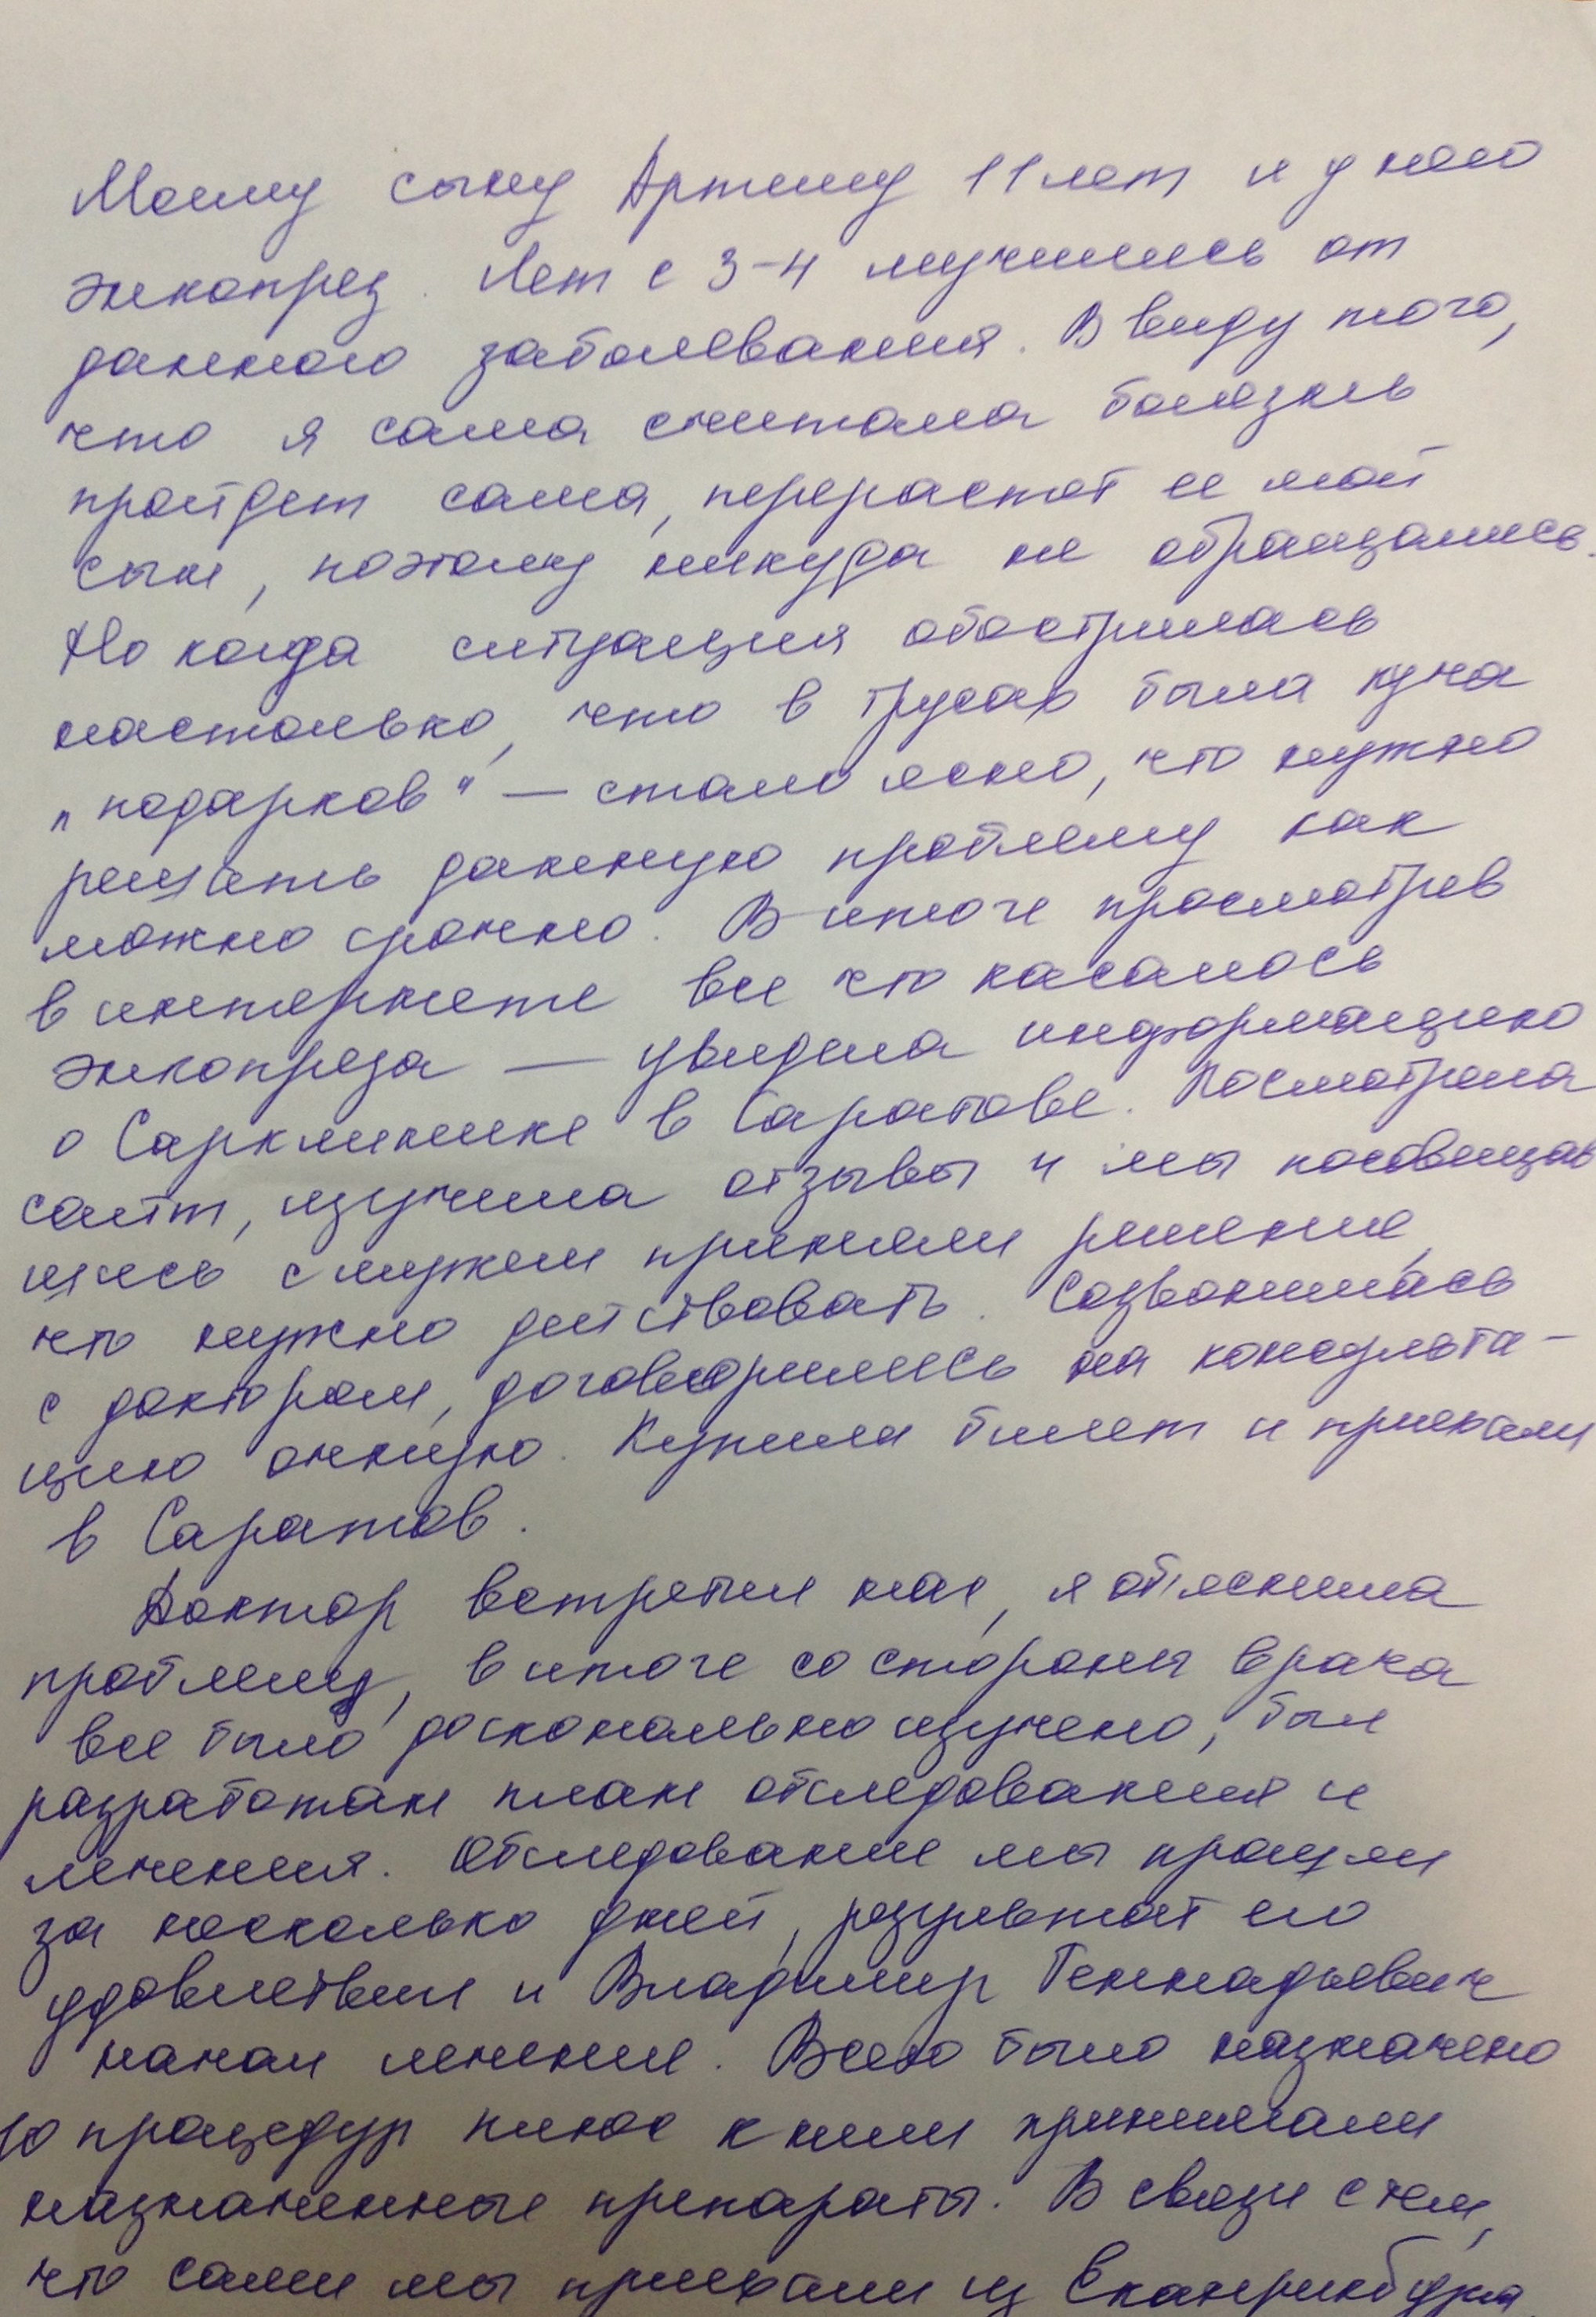 Моему сыну Артему 11 лет и у него
энкопрез. Лет с 3-4 мучились от
данного заболевания. В виду того,
что я сама считала болезнь
пройдет сама, перерастет ее мой
сын, поэтому никуда не обращались.
Но когда ситуация обострилась
настолько, что в трусах была куча
„подарков" — стало ясно, что нужно
решать данную проблему как
можно срочно. В итоге просмотрев
в интернете все что касалось
энкопреза — увидела информацию
о Сарклинике в Саратове. Посмотрела
сайт, изучила отзывы и мы посовещав
шись с мужем приняли решение,
что нужно действовать. Созвонилась
с доктором, договорились на консульта-
цию очную. Купила билет и приехали
в Саратов.
Доктор встретил нас, я объяснила
проблему, в итоге со стороны врача
все было досконально изучено, был
разработан план обследования и
лечения. Обследование мы прошли
за несколько дней, результат его
удовлетвил и Владимир Геннадьевич
начал лечение. Всего было назначено
10 процедур плюс к ним принимали
назначенные препараты. В связи с чем,
что сами мы приехали из Екатеринбурга